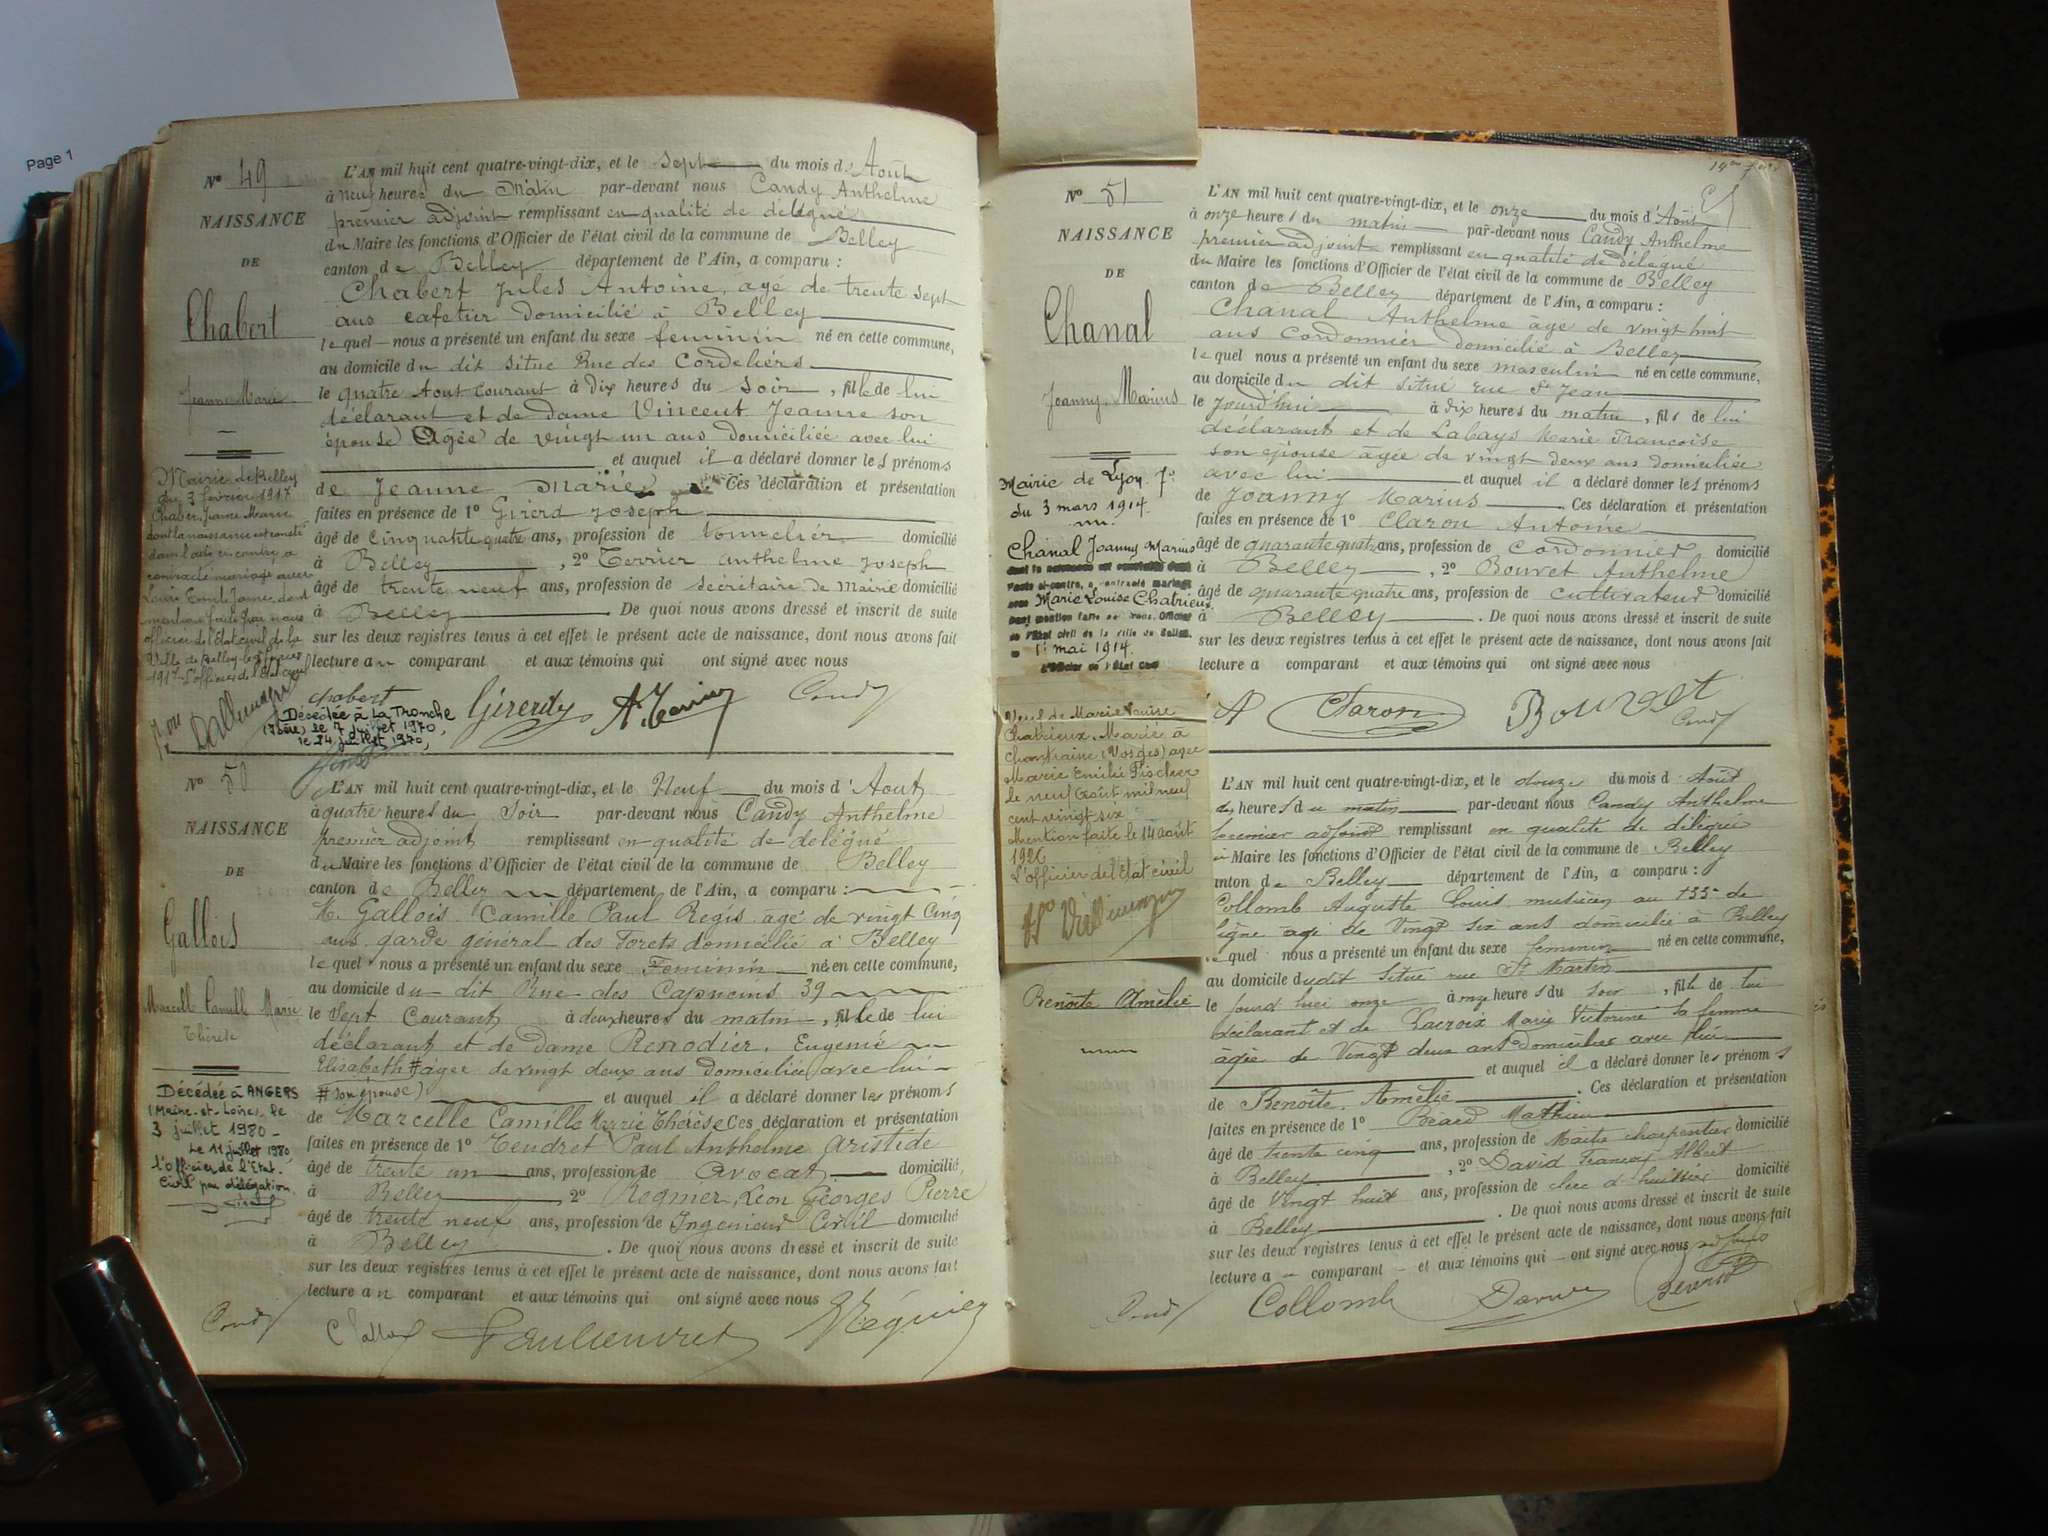 Page 1
No 49
NAISSANCE
DE
Chabert
Jeanne Marie
L'AN mil huit cent quatre-vingt-dix, et le sept du mois d' Août
à neuf heures du Matin par-devant nous Candy Anthelme
premier adjoint remplissant en qualité de délégué
du Maire les fonctions d'Officier de l'état civil de la commune de Belley
canton de Belley département de l'Ain, a comparu :
Chabert Jules Antoine, agé de trente sept
ans cafetier domicilié à Belley
lequel nous a présenté un enfant du sexe feminin né en cette commune,
au domicile du dit situé Rue des Cordeliers
le quatre Aout courant à Dix heures du Soir, fille de lui
déclarant et de Dame Vincent Jeanne son
épouse Agée de vingt un ans domiciliée avec lui
et auquel il a déclaré donner les prénoms
de Jeanne Marie Ces déclaration et présentation
faites en présence de 1o Girerd Joseph
âgé de Cinquante quatre ans, profession de tonnelier domicilié
à Belley, 2o Terrier Anthelme Joseph
âgé de trente neuf ans, profession de Secrétaire de Mairie domicilié
à Belley. De quoi nous avons dressé et inscrit de suite
sur les deux registres tenus à cet effet le présent acte de naissance, dont nous avons fait
lecture au comparant et aux témoins qui ont signé avec nous
Mairie de Belley
du 3 février 1917
Chabert Jeanne Marie
dont la naissance est constatée
dans l'acte ci-contre, a
contracté mariage avec
Louis Emile Jame, dont
mention faite par nous
officier de l'Etat civil de la
Ville de Belley le février
1917 L'officier de l'Etat civil
chabert Girerdy A. Terrier Candy
Décédée à La Tronche
(Isère) le 7 juillet 1970,
le 24 juillet 1970,
No 50
NAISSANCE
DE
Gallois
Marcelle Camille Marie
Thérèse
L'AN mil huit cent quatre-vingt-dix, et le Neuf du mois d' Aout
à quatre heures du Soir par-devant nous Candy Anthelme
premier adjoint remplissant en qualité de délégué
du Maire les fonctions d'Officier de l'état civil de la commune de Belley
canton de Belley département de l'Ain, a comparu :
M. Gallois Camille Paul Regis agé de vingt Cinq
ans garde général des Forets domicilié à Belley
lequel nous a présenté un enfant du sexe Feminin né en cette commune,
au domicile du dit Rue des Capucins 39
le Sept Courant à deux heures du matin, fille de lui
déclarant et de Dame Renodier, Eugenie
Elisabeth # agée de vingt deux ans domiciliée avec lui
# son épouse) et auquel il a déclaré donner les prénoms
de Marcelle Camille Marie Thérèse Ces déclaration et présentation
faites en présence de 1o Tendret Paul Anthelme Aristide
âgé de trente un ans, profession de Avocat domicilié,
à Belley 2o Regnier, Léon Georges Pierre
âgé de trente neuf ans, profession de Ingenieur Civil domicilié
à Belley. De quoi nous avons dressé et inscrit de suite
sur les deux registres tenus à cet effet le présent acte de naissance, dont nous avons fait
lecture au comparant et aux témoins qui ont signé avec nous
Décédée à ANGERS
(Maine-et-Loire) le
3 juillet 1980 -
Le 11 juillet 1980
l'Officier de l'Etat-
Civil par délégation.
Candy C Gallois Paul Tendret Régnier
No 51
NAISSANCE
DE
Chanal
Joanny Marius
L'AN mil huit cent quatre-vingt-dix, et le onze du mois d' Août
à onze heures du matin par-devant nous Candy Anthelme
premier adjoint remplissant en qualité de délégué
du Maire les fonctions d'Officier de l'état civil de la commune de Belley
canton de Belley département de l'Ain, a comparu :
Chanal Anthelme âgé de vingt huit
ans Cordonnier domicilié à Belley
lequel nous a présenté un enfant du sexe masculin né en cette commune,
au domicile du dit situé rue St Jean
le jourd'hui à dix heures du matin, fils de lui
déclarant et de Labays Marie Françoise
son épouse agée de vingt deux ans domiciliée
avec lui et auquel il a déclaré donner les prénoms
de Joanny Marius. Ces déclaration et présentation
faites en présence de 1o Claron Antoine
âgé de quarante quatre ans, profession de Cordonnier domicilié
à Belley, 2o Bouvet Anthelme
âgé de quarante quatre ans, profession de cultivateur domicilié
à Belley. De quoi nous avons dressé et inscrit de suite
sur les deux registres tenus à cet effet le présent acte de naissance, dont nous avons fait
lecture a comparant et aux témoins qui ont signé avec nous
Mairie de Lyon 7e
du 3 mars 1914.
Chanal Joanny Marius
dont la naissance est constatée dans
l'acte ci-contre, a contracté mariage
avec Marie Louise Chatrieux
dont mention faite par nous, Officier
de l'Etat civil de la ville de Belley
le 1er mai 1914.
L'Officier de l'Etat Civil
Claron Bouvet Candy
Veuf de Marie Louise
Chatrieux. Marié à
Chantraine (Vosges) avec
Marie Emilie Fischer
le neuf Août mil neuf
cent vingt six
Mention faite le 14 août
1926
L'officier de l'Etat civil
Benoîte Amélie
L'AN mil huit cent quatre-vingt-dix, et le douze du mois d' Août
heures du matin par-devant nous Candy Anthelme
premier adjoint remplissant en qualité de délégué
Maire les fonctions d'Officier de l'état civil de la commune de Belley
canton de Belley département de l'Ain, a comparu :
Collomb Auguste Louis, musicien au 133e de
ligne agé de Vingt six ans domicilié à Belley
quel nous a présenté un enfant du sexe feminin né en cette commune,
au domicile dudit situé rue St Martin
le jourd'hui onze à onze heures du soir, fille de lui
déclarant et de Lacroix Marie Victorine sa femme
âgée de Vingt deux ans domiciliée avec lui
et auquel il a déclaré donner les prénoms
de Benoîte, Amélie. Ces déclaration et présentation
faites en présence de 1o Béard Mathieu
âgé de trente cinq ans, profession de Maître charpentier domicilié
à Belley, 2o David François Albert
âgé de Vingt huit ans, profession de clerc d'huissier domicilié
à Belley. De quoi nous avons dressé et inscrit de suite
sur les deux registres tenus à cet effet le présent acte de naissance, dont nous avons fait
lecture a comparant et aux témoins qui ont signé avec nous
Candy Collomb